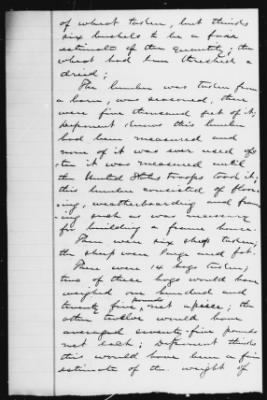 of wheat taken, but thinks
six bushels to be a fair
estimate of the quantity; the
wheat had been threshed &
dried;
The lumber was taken from
a barn, was seasoned, there
were five thousand feet of it;
deponent knows this lumber
had been measured and
none of it was ever used af-
ter it was measured until
the United States troops took it;
this lumber consisted of floor-
ing, weatherboarding and fram-
ing such as was necessary
for building a frame house.
There were six sheep taken;
the sheep were large and fat.
There were 14 hogs taken;
two of these hogs would have
weighed one hundred and
twenty five pounds net apiece; the
other twelve would have
averaged seventy-five pounds
net each; Deponent thinks
this would have been a fair
estimate of the weight of